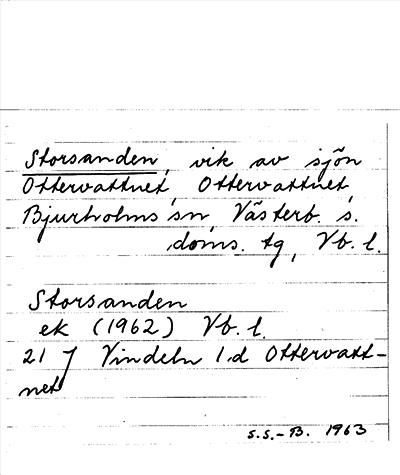 Storsanden, vik av sjön
Ottervattnet, Ottervattnet,
Bjurholms sn, Västerb. s.
doms. tg, Vb. l.
Storsanden
ek (1962) Vb. l.
21 J Vindeln 1d Ottervatt-
net
S.S.-B. 1963